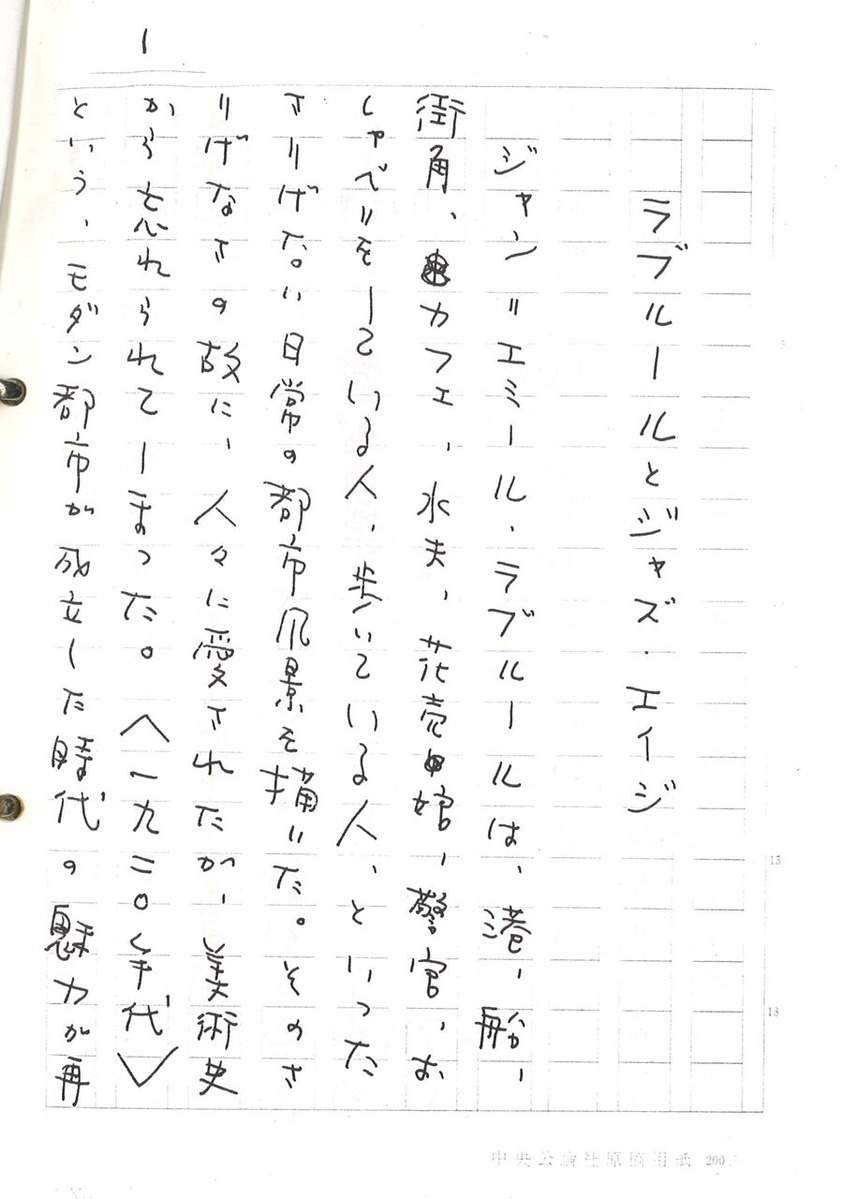 1
ラブルールとジャズ・エイジ
ジャン=エミール・ラブルールは、港、船、
街角、カフェ、水夫、花売、娼婦、警官、お
しゃべりをしている人、歩いている人、といった
さりげない日常の都市風景を描いた。そのさ
りげなさの故に、人々に愛されたが、美術史
から忘れられてしまった。〈一九二〇年代〉
という、モダン都市が成立した時代の魅力が再
5
15
18
中央公論社原稿用紙 200